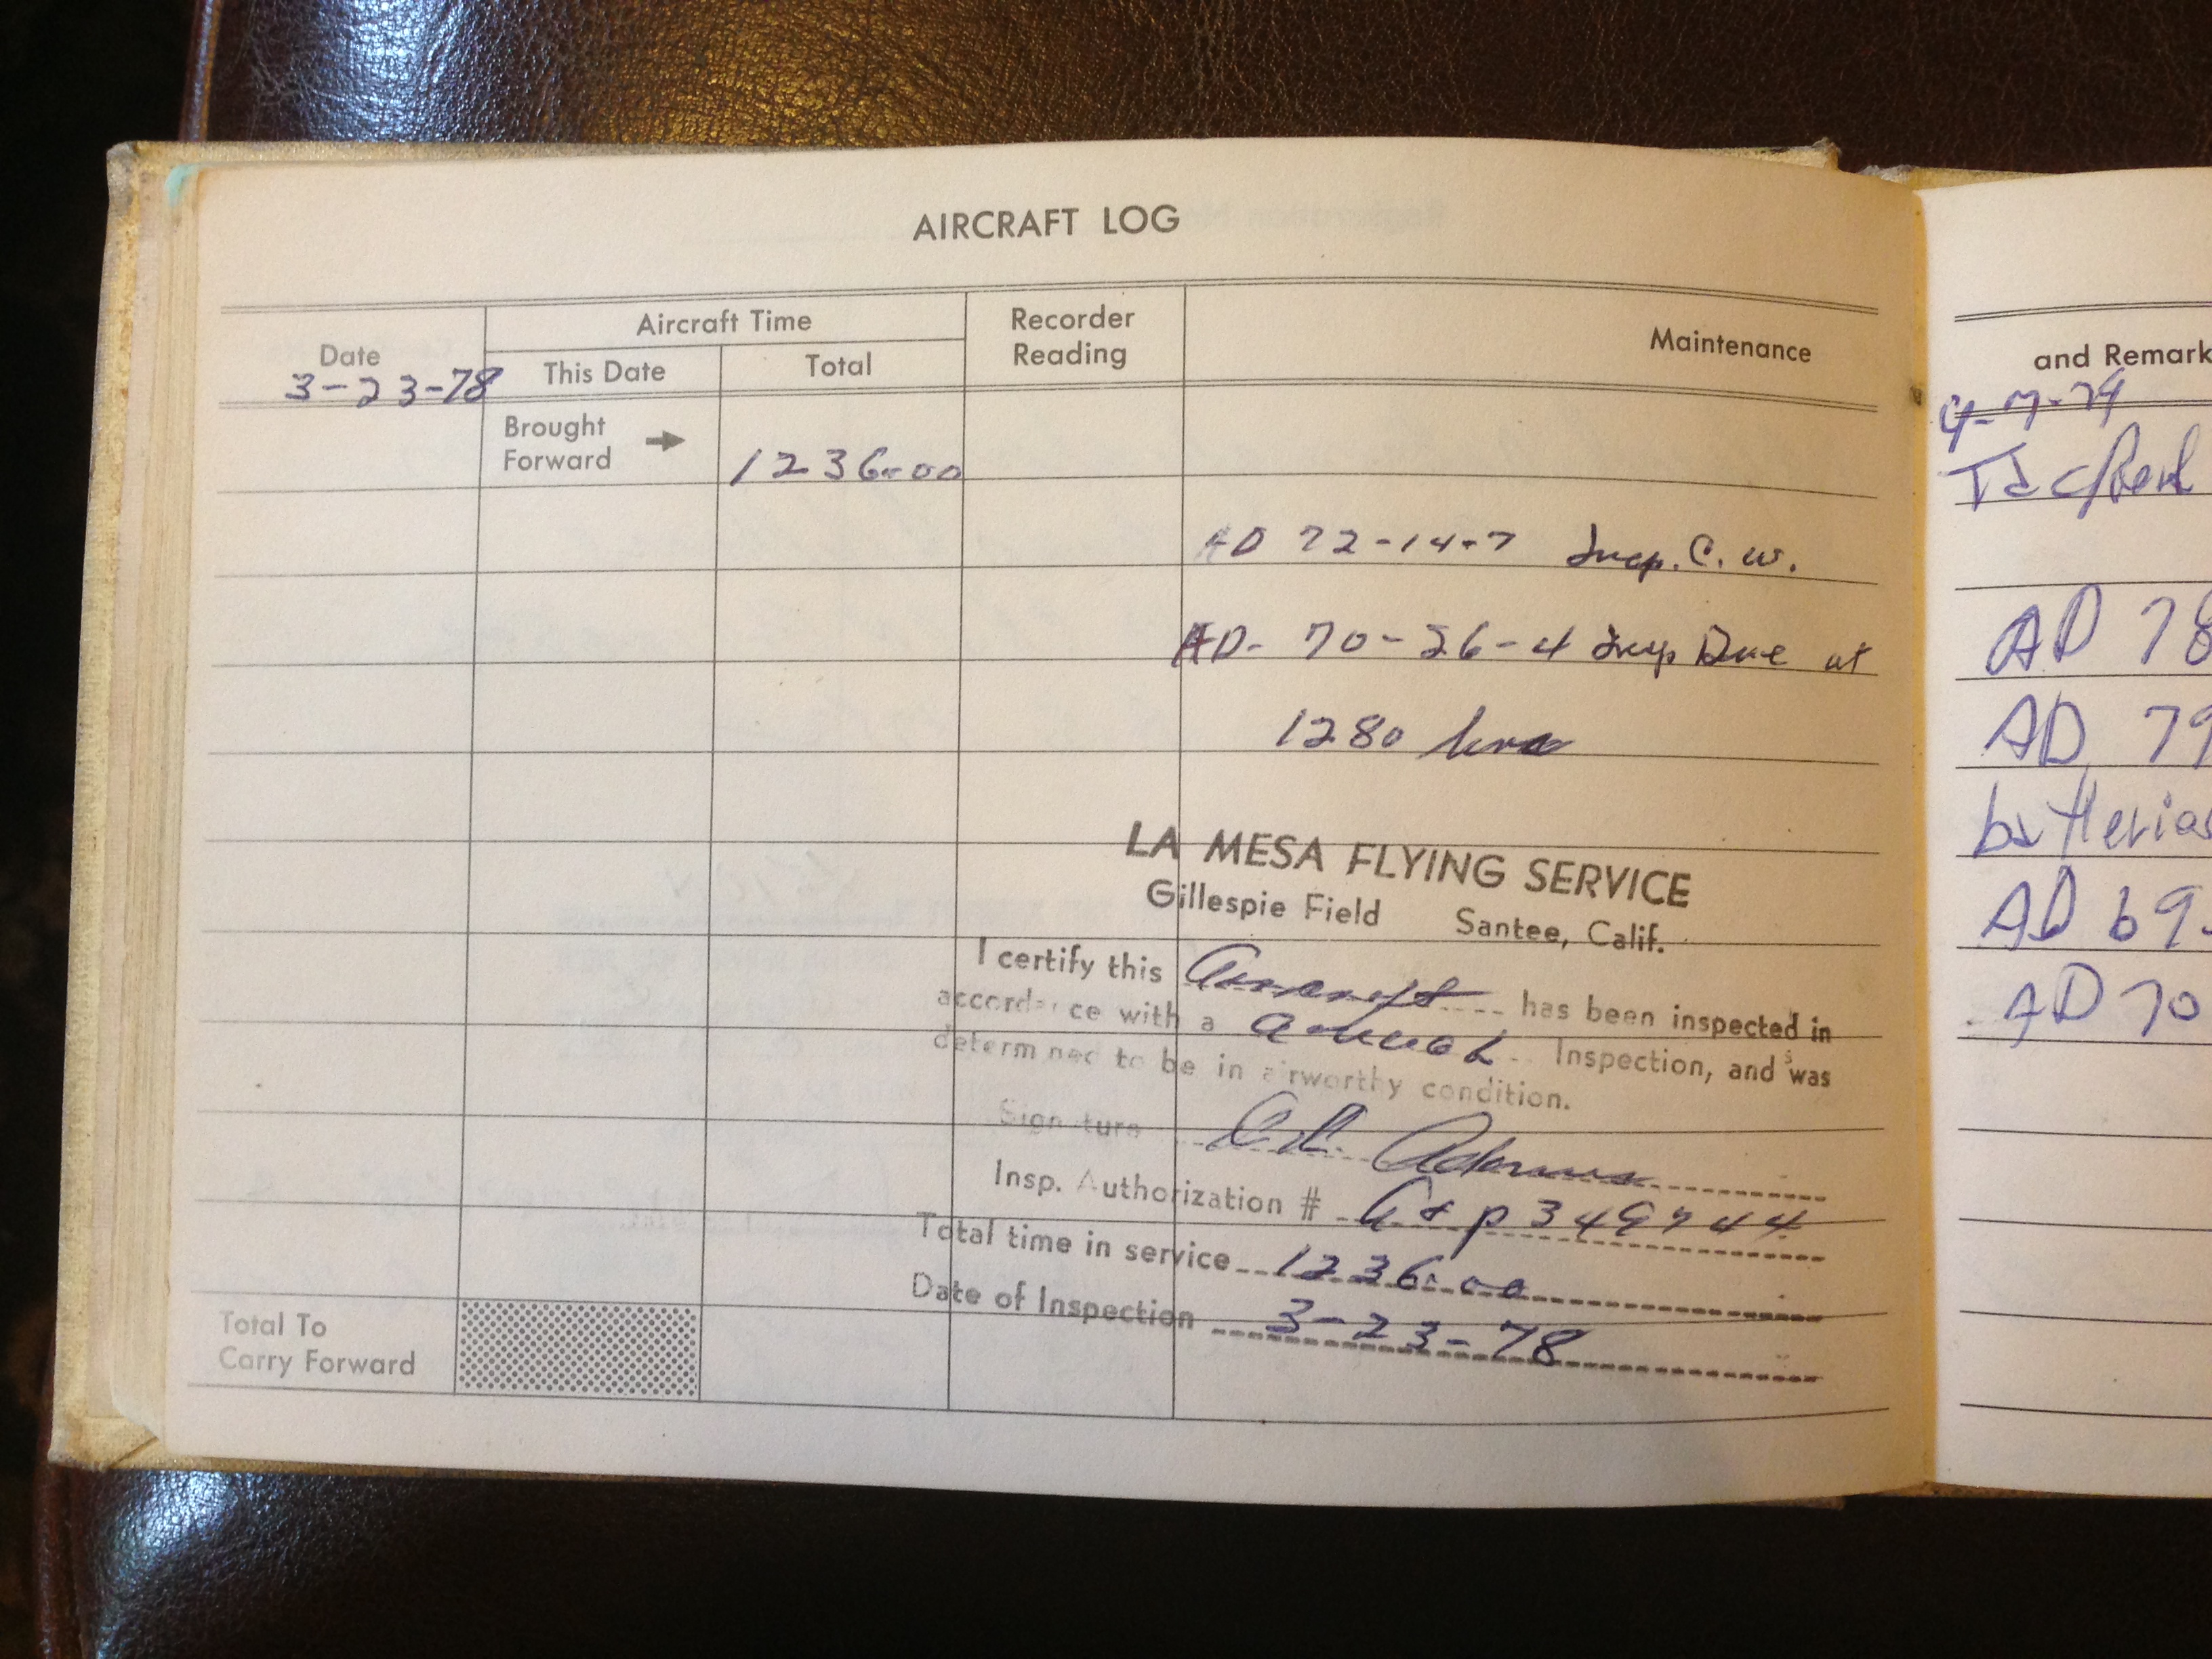 AIRCRAFT LOG
Date
Aircraft Time
This Date
Total
Recorder
Reading
Maintenance
3-23-78
Brought
Forward
1236.00
AD 72-14-7 Insp. C.W.
AD- 70-26-4 Insp Due at
1280 hrs
LA MESA FLYING SERVICE
Gillespie Field Santee, Calif.
I certify this Aircraft has been inspected in
accordance with a annual Inspection, and was
determined to be in airworthy condition.
Signature Adams
Insp. Authorization # A&P 349744
Total time in service 1236.00
Date of Inspection 3-23-78
Total To
Carry Forward
and Remark
4-7-79
AD 78
AD 79
batteries
AD 69-
AD 70